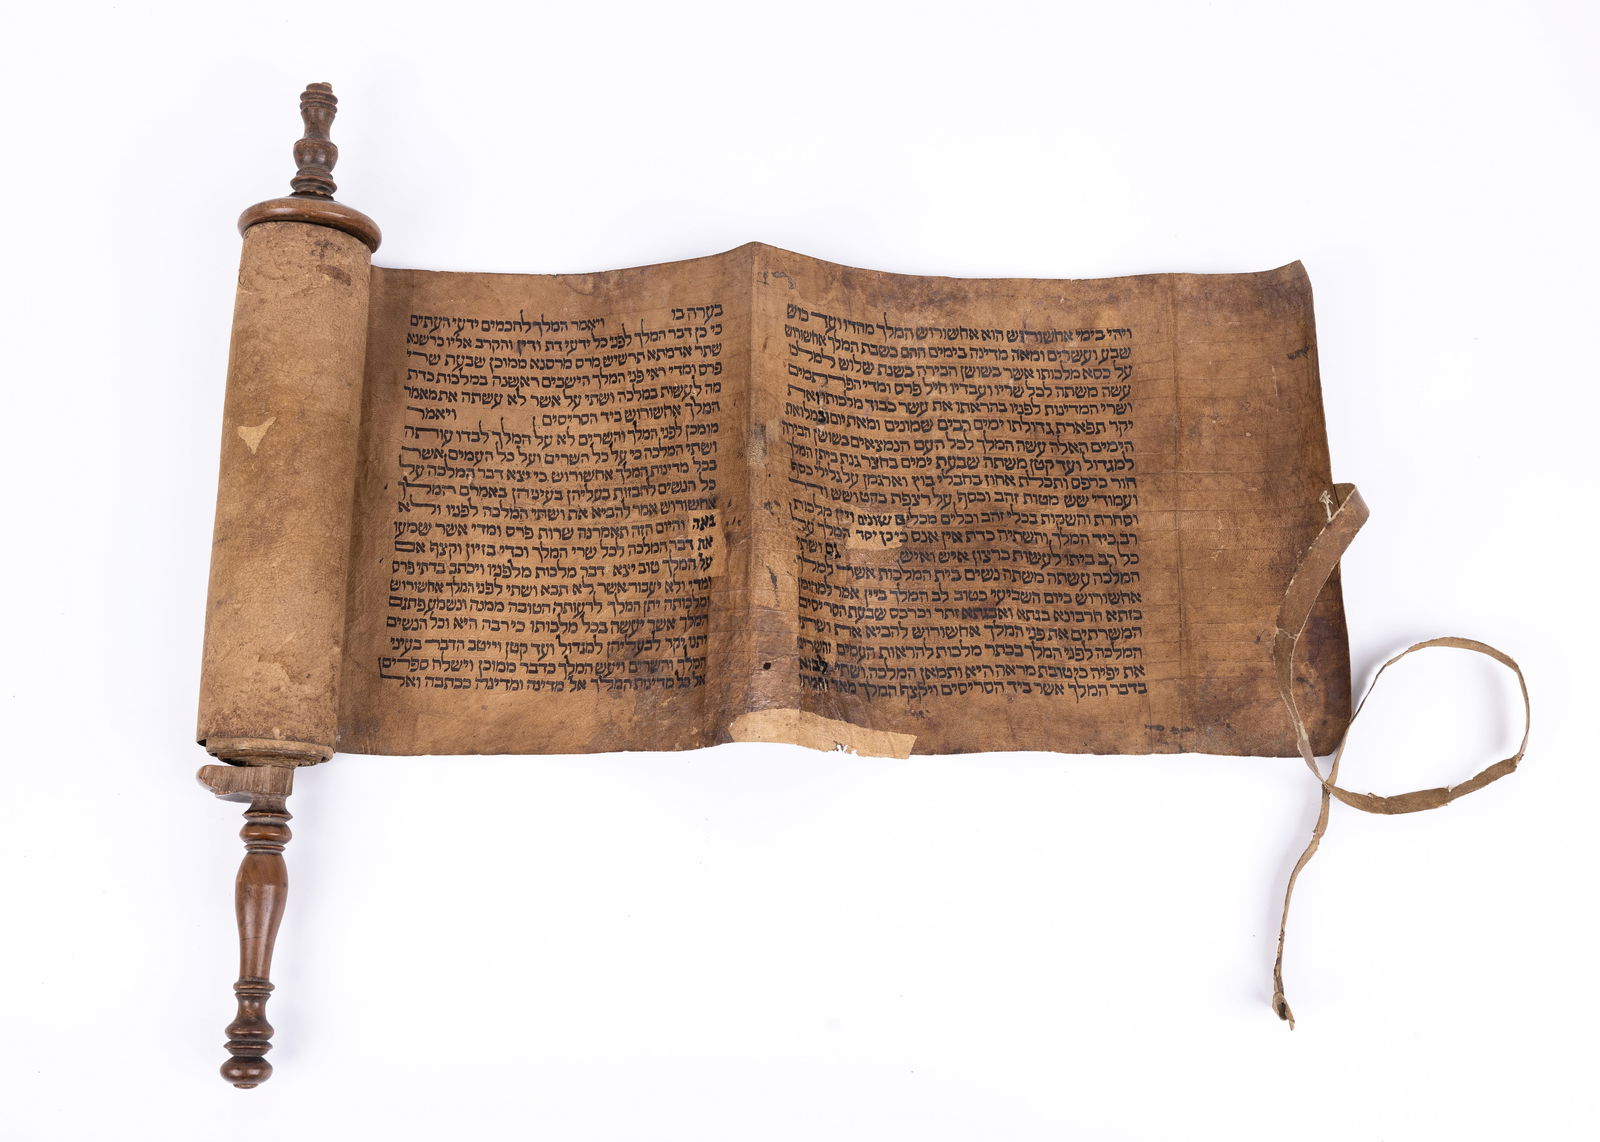 ויהי בימי אחשורוש הוא אחשורוש המלך מהדו ועד כוש
שבע ועשרים ומאה מדינה בימים ההם כשבת המלך אחשורוש
על כסא מלכותו אשר בשושן הבירה בשנת שלוש למלכו
עשה משתה לכל שריו ועבדיו חיל פרס ומדי הפרתמים
ושרי המדינות לפניו בהראתו את עשר כבוד מלכותו ואת
יקר תפארת גדולתו ימים רבים שמונים ומאת יום ובמלואת
הימים האלה עשה המלך לכל העם הנמצאים בשושן הבירה
למגדול ועד קטן משתה שבעת ימים בחצר גנת ביתן המלך
חור כרפס ותכלת אחוז בחבלי בוץ וארגמן על גלילי כסף
ועמודי שש מטות זהב וכסף על רצפת בהט ושש ודר
וסחרת והשקות בכלי זהב וכלים מכלים שונים ויין מלכות
רב כיד המלך והשתיה כדת אין אנס כי כן יסד המלך על
כל רב ביתו לעשות כרצון איש ואיש גם ושתי
המלכה עשתה משתה נשים בית המלכות אשר למלך
אחשורוש ביום השביעי כטוב לב המלך ביין אמר למהומן
בזתא חרבונא בגתא ואבגתא זתר וכרכס שבעת הסריסים
המשרתים את פני המלך אחשורוש להביא את ושתי
המלכה לפני המלך בכתר מלכות להראות העמים והשרים
את יפיה כי טובת מראה היא ותמאן המלכה ושתי לבוא
בדבר המלך אשר ביד הסריסים ויקצף המלך מאד וחמתו
בערה בו ויאמר המלך לחכמים ידעי העתים
כי כן דבר המלך לפני כל ידעי דת ודין והקרב אליו כרשנא
שתר אדמתא תרשיש מרס מרסנא ממוכן שבעת שרי
פרס ומדי ראי פני המלך הישבים ראשנה במלכות כדת
מה לעשות במלכה ושתי על אשר לא עשתה את מאמר
המלך אחשורוש ביד הסריסים ויאמר
מומכן לפני המלך והשרים לא על המלך לבדו עותה
ושתי המלכה כי על כל השרים ועל כל העמים אשר
בכל מדינות המלך אחשורוש כי יצא דבר המלכה על
כל הנשים להבזות בעליהן בעיניהן באמרם המלך
אחשורוש אמר להביא את ושתי המלכה לפניו ולא
באה והיום הזה תאמרנה שרות פרס ומדי אשר שמעו
את דבר המלכה לכל שרי המלך וכדי בזיון וקצף אם
על המלך טוב יצא דבר מלכות מלפניו ויכתב בדתי פרס
ומדי ולא יעבור אשר לא תבא ושתי לפני המלך אחשורוש
ומלכותה יתן המלך לרעותה הטובה ממנה ונשמע פתגם
המלך אשר יעשה בכל מלכותו כי רבה היא וכל הנשים
יתנו יקר לבעליהן למגדול ועד קטן וייטב הדבר בעיני
המלך והשרים ויעש המלך כדבר ממוכן וישלח ספרים
אל כל מדינות המלך אל מדינה ומדינה ככתבה ואל